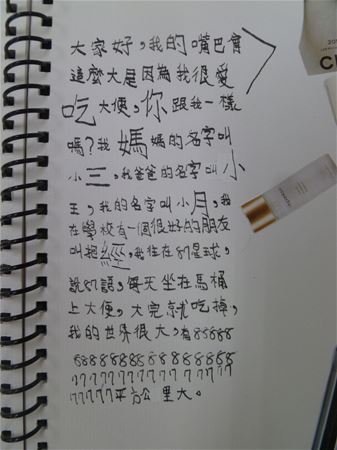 大家好,我的嘴巴會
這麼大是因為我很愛
吃大便,你跟我一樣
嗎?我媽媽的名字叫
小三,我爸爸的名字叫小
王,我的名字叫小月,我
在學校有一個很好的朋友
叫把經,我住在87星球,
說87語,每天坐在馬桶
上大便,大完就吃掉,
我的世界很大,有85888
6888888888888
777777777777
77777平方公里大。